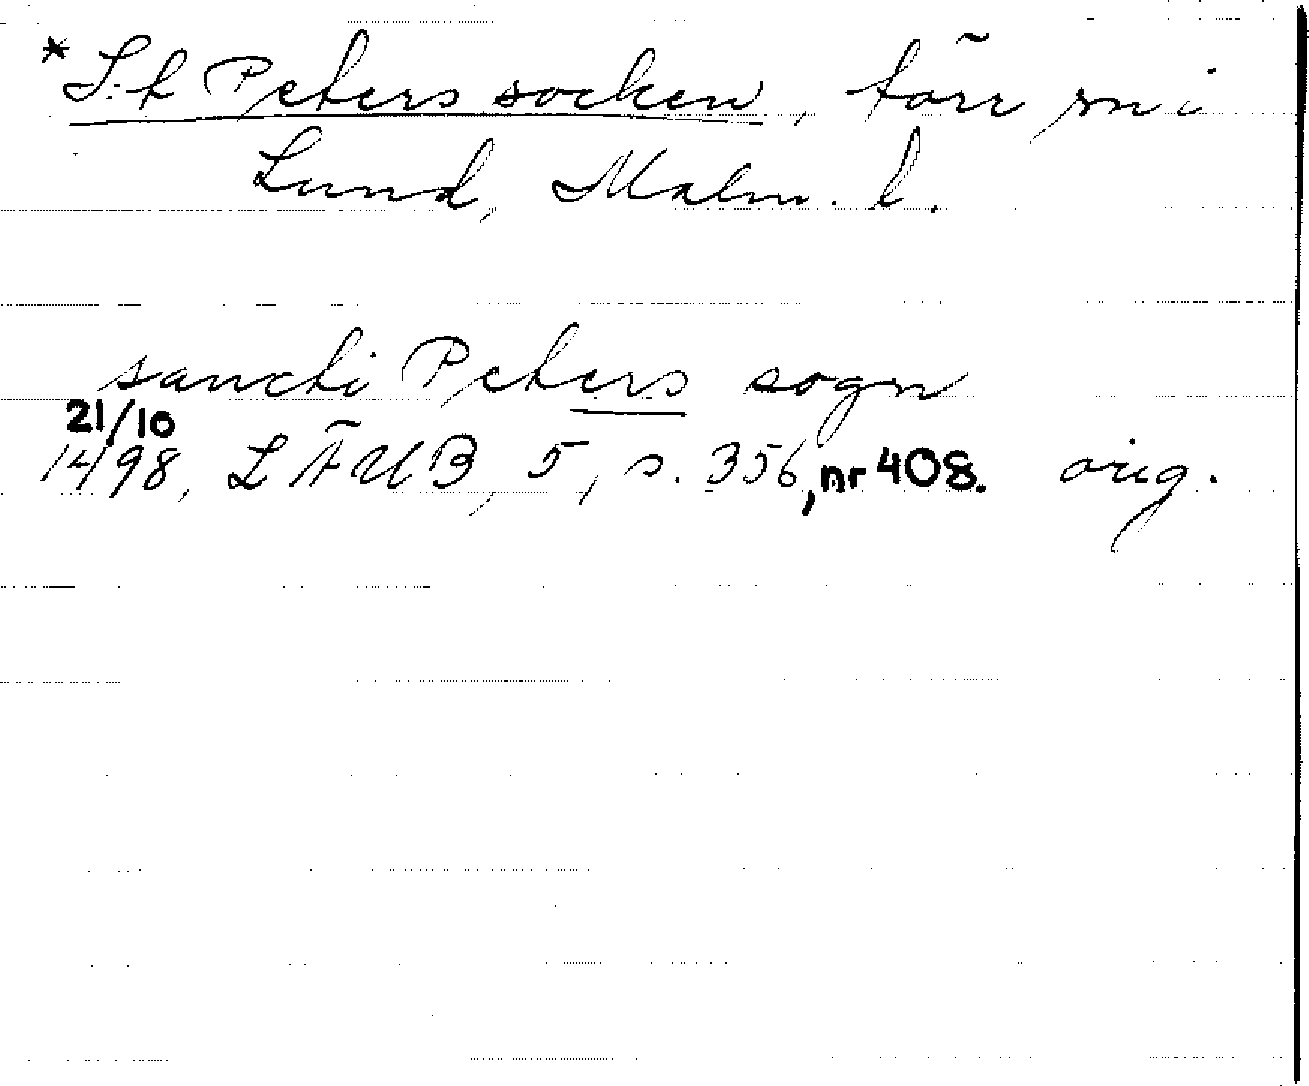 *S:t Peters socken, förr sn i
Lund, Malm. l.
sancti Peters sogn
21/10
1498, LÄUB, 5, s. 356, nr 408. orig.